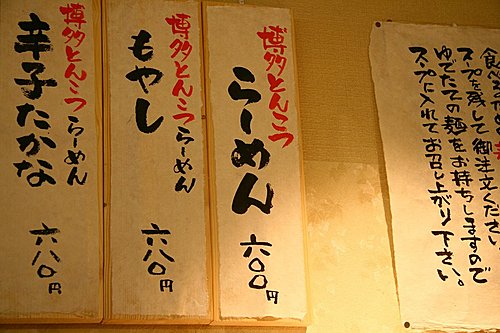 博多とんこつ
らーめん
六〇〇円
博多とんこつらーめん
もやし
六八〇円
博多とんこつらーめん
辛子たかな
六八〇円
スープを残して御注文ください
ゆでたての麺をお持ちしますので
スープに入れてお召し上がり下さい。